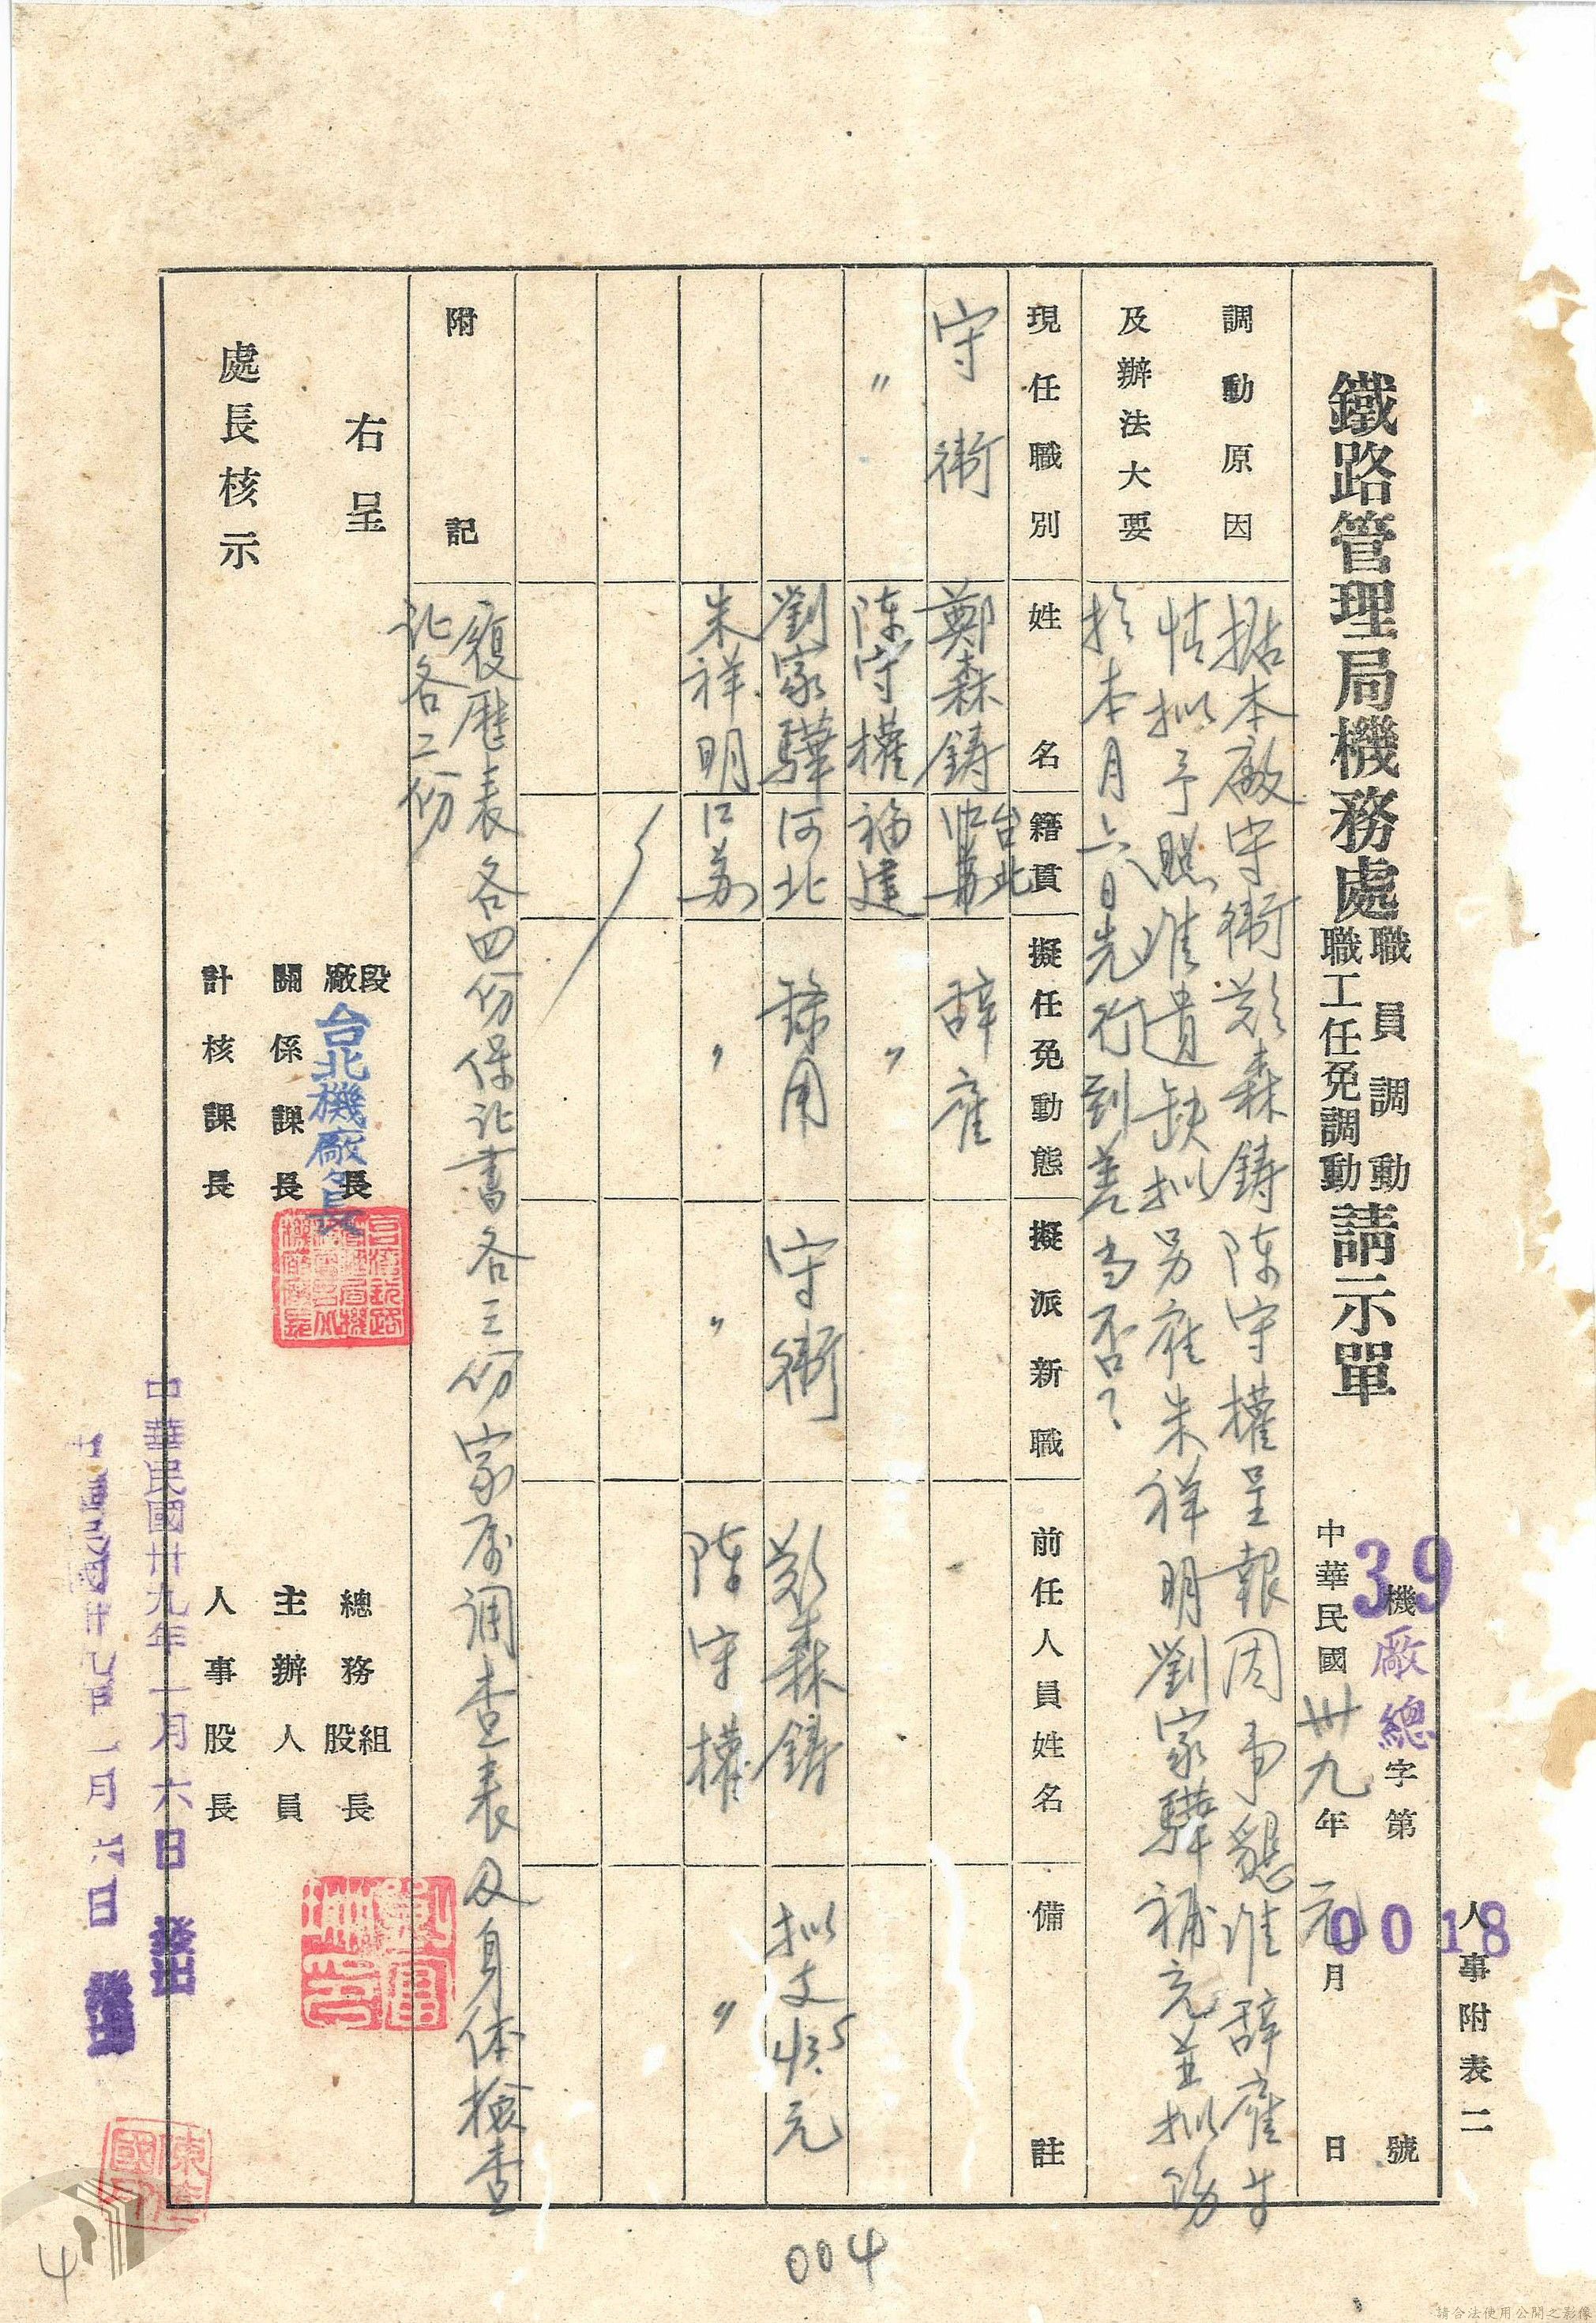 人事附表二
鐵路管理局機務處職員調動職工任免調動請示單
39機廠總字第0018號
中華民國卅九年元月 日
調動原因及辦法大要
据本廠守衛鄭森鑄陳守權呈報因事懇准辞雇等
情拟予照准遺缺拟另雇朱祥明劉家驊補充並拟飭
於本月六日先行到差当否？
現任職別 姓名 籍貫 擬任免動態 擬派新職 前任人員姓名 備註
守衛 鄭森鑄 台北 辞雇
〃 陳守權 福建 〃
劉家驊 河北 錄用 守衛 鄭森鑄 拟支43.5元
朱祥明 江苏 〃 〃 陳守權 〃
附記
履歷表各四份保証書各三份家屬調查表及身体檢查
証各二份
右呈
處長核示
段廠 台北機廠長 長
關係課長
計核課長
總務組股長
主辦人員
人事股長
中華民國卅九年一月六日發出
004
4
請合法使用公開之影像